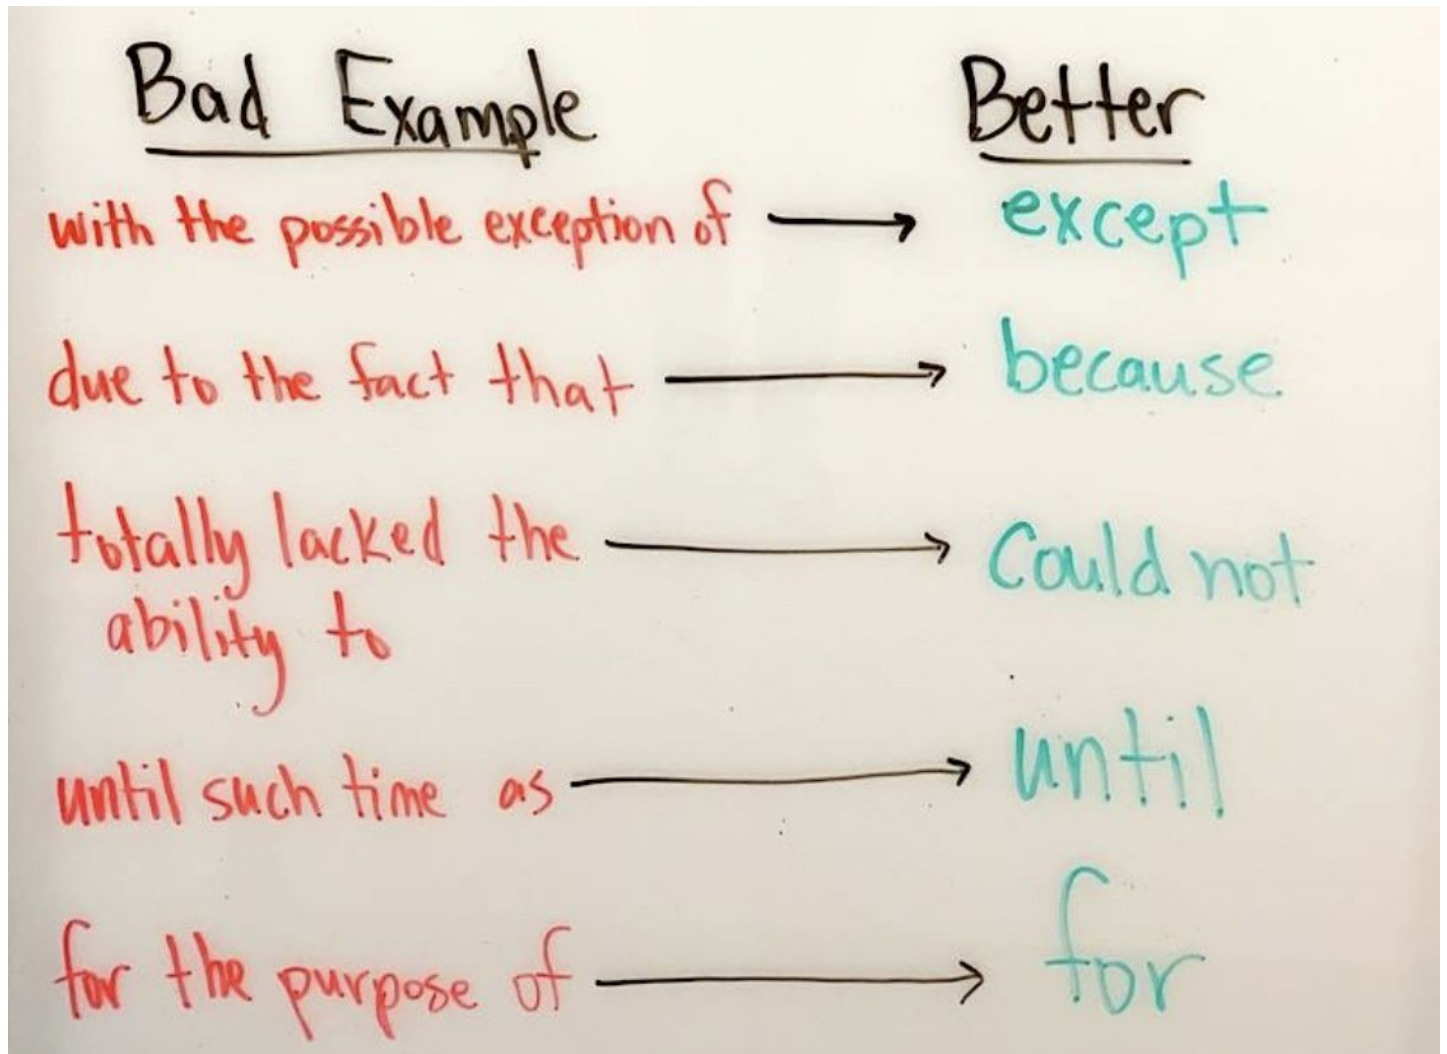 Bad Example Better
with the possible exception of except
due to the fact that because
totally lacked the Could not
ability to
until such time as until
for the purpose of for